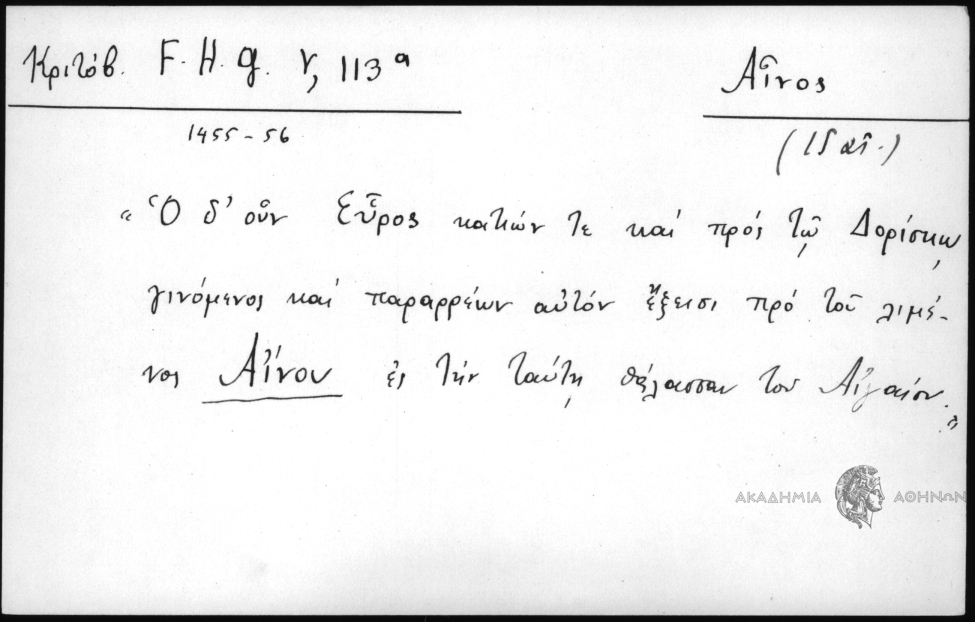 Κριτόβ. F. H. g. V, 113ᵃ
Αἶνος
1455-56
(15 αἰ.)
« Ὁ δ' οὖν Εὖρος κατιών τε καί πρός τῷ Δορίσκῳ
γινόμενος καί παραρρέων αὐτόν ἔξεισι πρό τοῦ λιμέ-
νος Αἴνου ἐς τήν ταύτῃ θάλασσαν τοῦ Αἰγαίου. »
ΑΚΑΔΗΜΙΑ ΑΘΗΝΩΝ